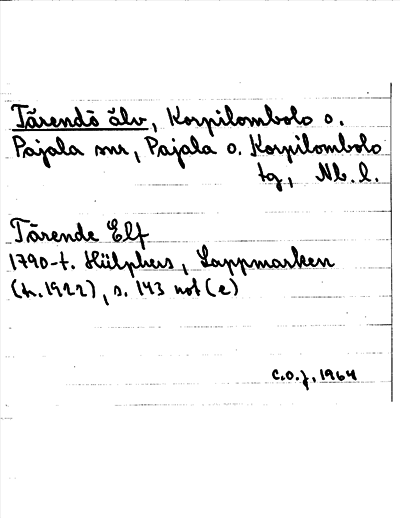 Tärendö älv, Korpilombolo o.
Pajala snr, Pajala o. Korpilombolo
tg, Nb. l.
Tärende Elf
1790-t. Hülphers, Lappmarken
(tr. 1922), s. 143 not (e)
C.O.J. 1964